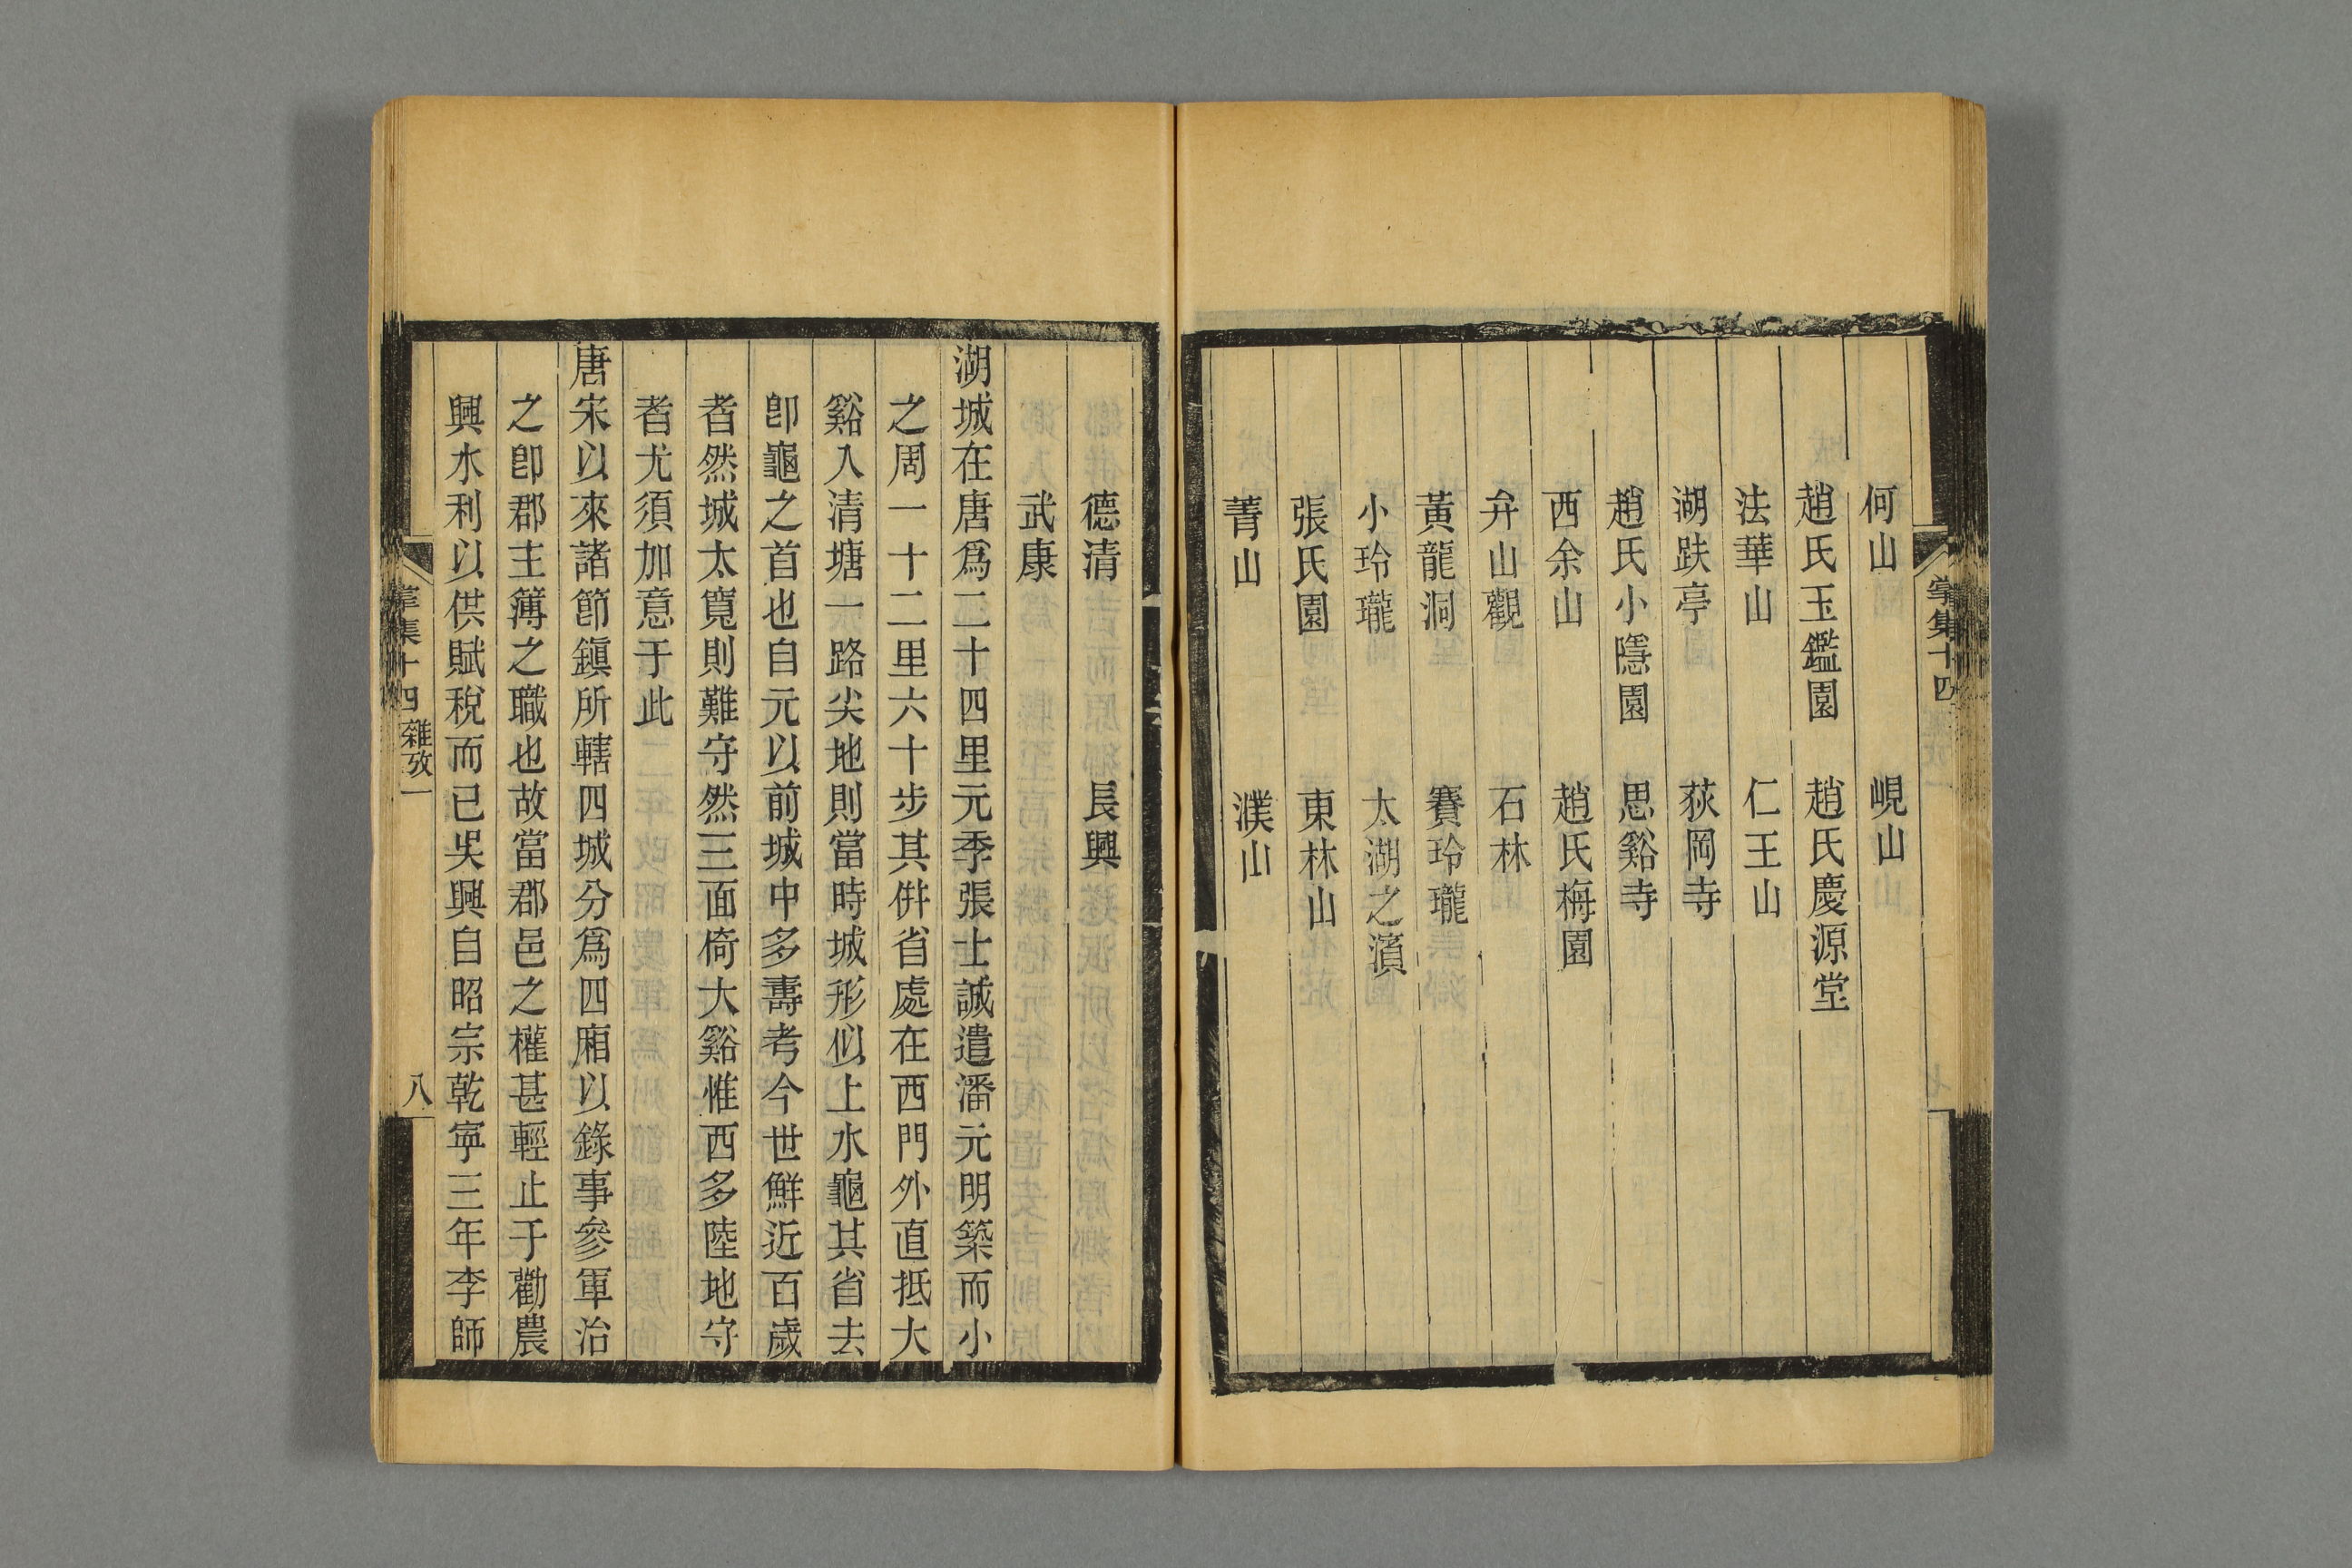 何山　峴山
趙氏玉鑑園　趙氏慶源堂
法華山　仁王山
湖趺亭　荻岡寺
趙氏小隱園　思谿寺
西余山　趙氏梅園
弁山觀　石林
黃龍洞　賽玲瓏
小玲瓏　太湖之濱
張氏園　東林山
菁山　濮山
德清　長興
武康
湖城在唐爲二十四里元季張士誠遣潘元明築而小
之周一十二里六十步其倂省處在西門外直抵大
谿入清塘一路尖地則當時城形似上水龜其省去
卽龜之首也自元以前城中多壽考今世鮮近百歲
者然城太寬則難守然三面倚大谿惟西多陸地守
者尤須加意于此
唐宋以來諸節鎭所轄四城分爲四廂以錄事參軍治
之卽郡主簿之職也故當郡邑之權甚輕止于勸農
興水利以供賦稅而已吳興自昭宗乾寧三年李師
集十四　雜攷一　八